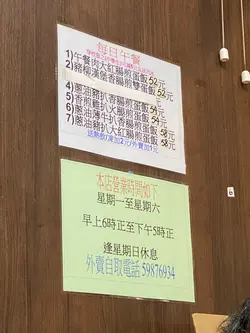 每日午餐
1)午餐肉大紅腸煎蛋飯52元
2)豬柳漢堡香腸煎雙蛋飯52元
4)蔥油豬扒香腸煎蛋飯54元
5)香煎雞扒大腿煎蛋飯54元
6)蔥油薄牛扒香腸煎蛋飯58元
7)蔥油豬扒大紅腸煎蛋飯58元
送熱飲/凍加2元/外賣加1元
本店營業時間如下
星期一至星期六
早上6時正至下午5時正
逢星期日休息
外賣自取電話 59876934